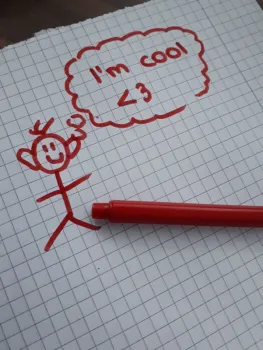 I'm cool
<3